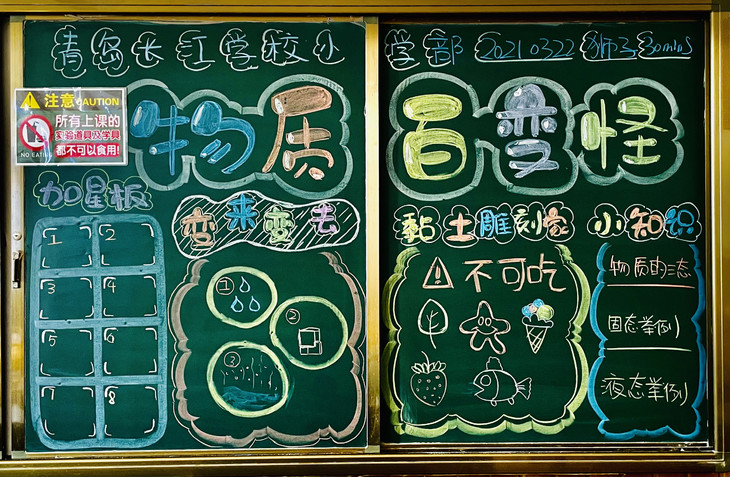 青岛长江学校小学部 20210322 狮子 30mins
注意 CAUTION
所有上课的
实验道具及学具
都不可以食用!
NO EATING
物质百变怪
加星板
1 2
3 4
5 6
7 8
变来变去
① 
②
③
黏土雕刻家
不可吃
小知识
物质的三态
固态举例
液态举例